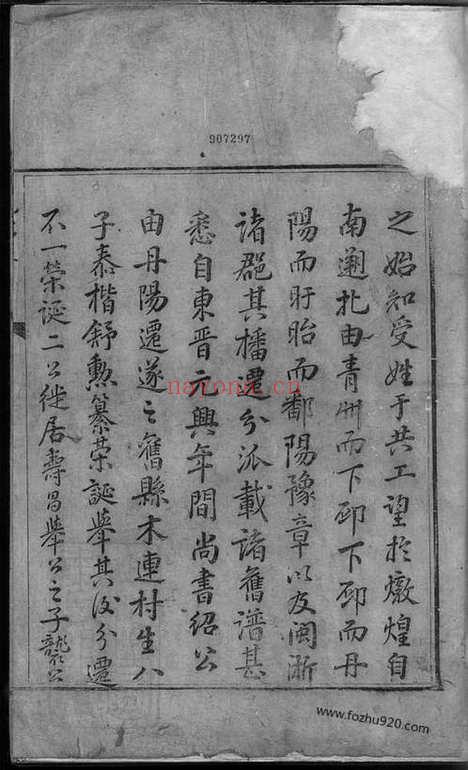 907297
之始知受姓于共工望於燉煌自
南遡北由青州而下邳下邳而丹
陽而盱眙而鄱陽豫章以及閩浙
諸郡其播遷分派載諸舊譜甚
悉自東晋元興年間尚書紹公
由丹陽遷遂之舊縣木連村生八
子泰楷舒勲纂荣誕舉其後分遷
不一荣誕二公徙居壽昌舉公之子龍公
nayona.cn
www.fozhu920.com